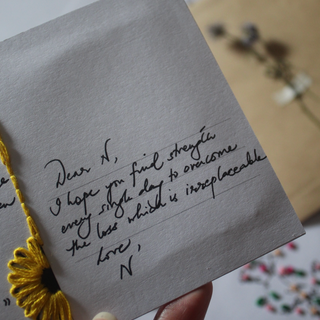 Dear N,
I hope you find strength
every single day to overcome
the loss which is irreplaceable
Love,
N